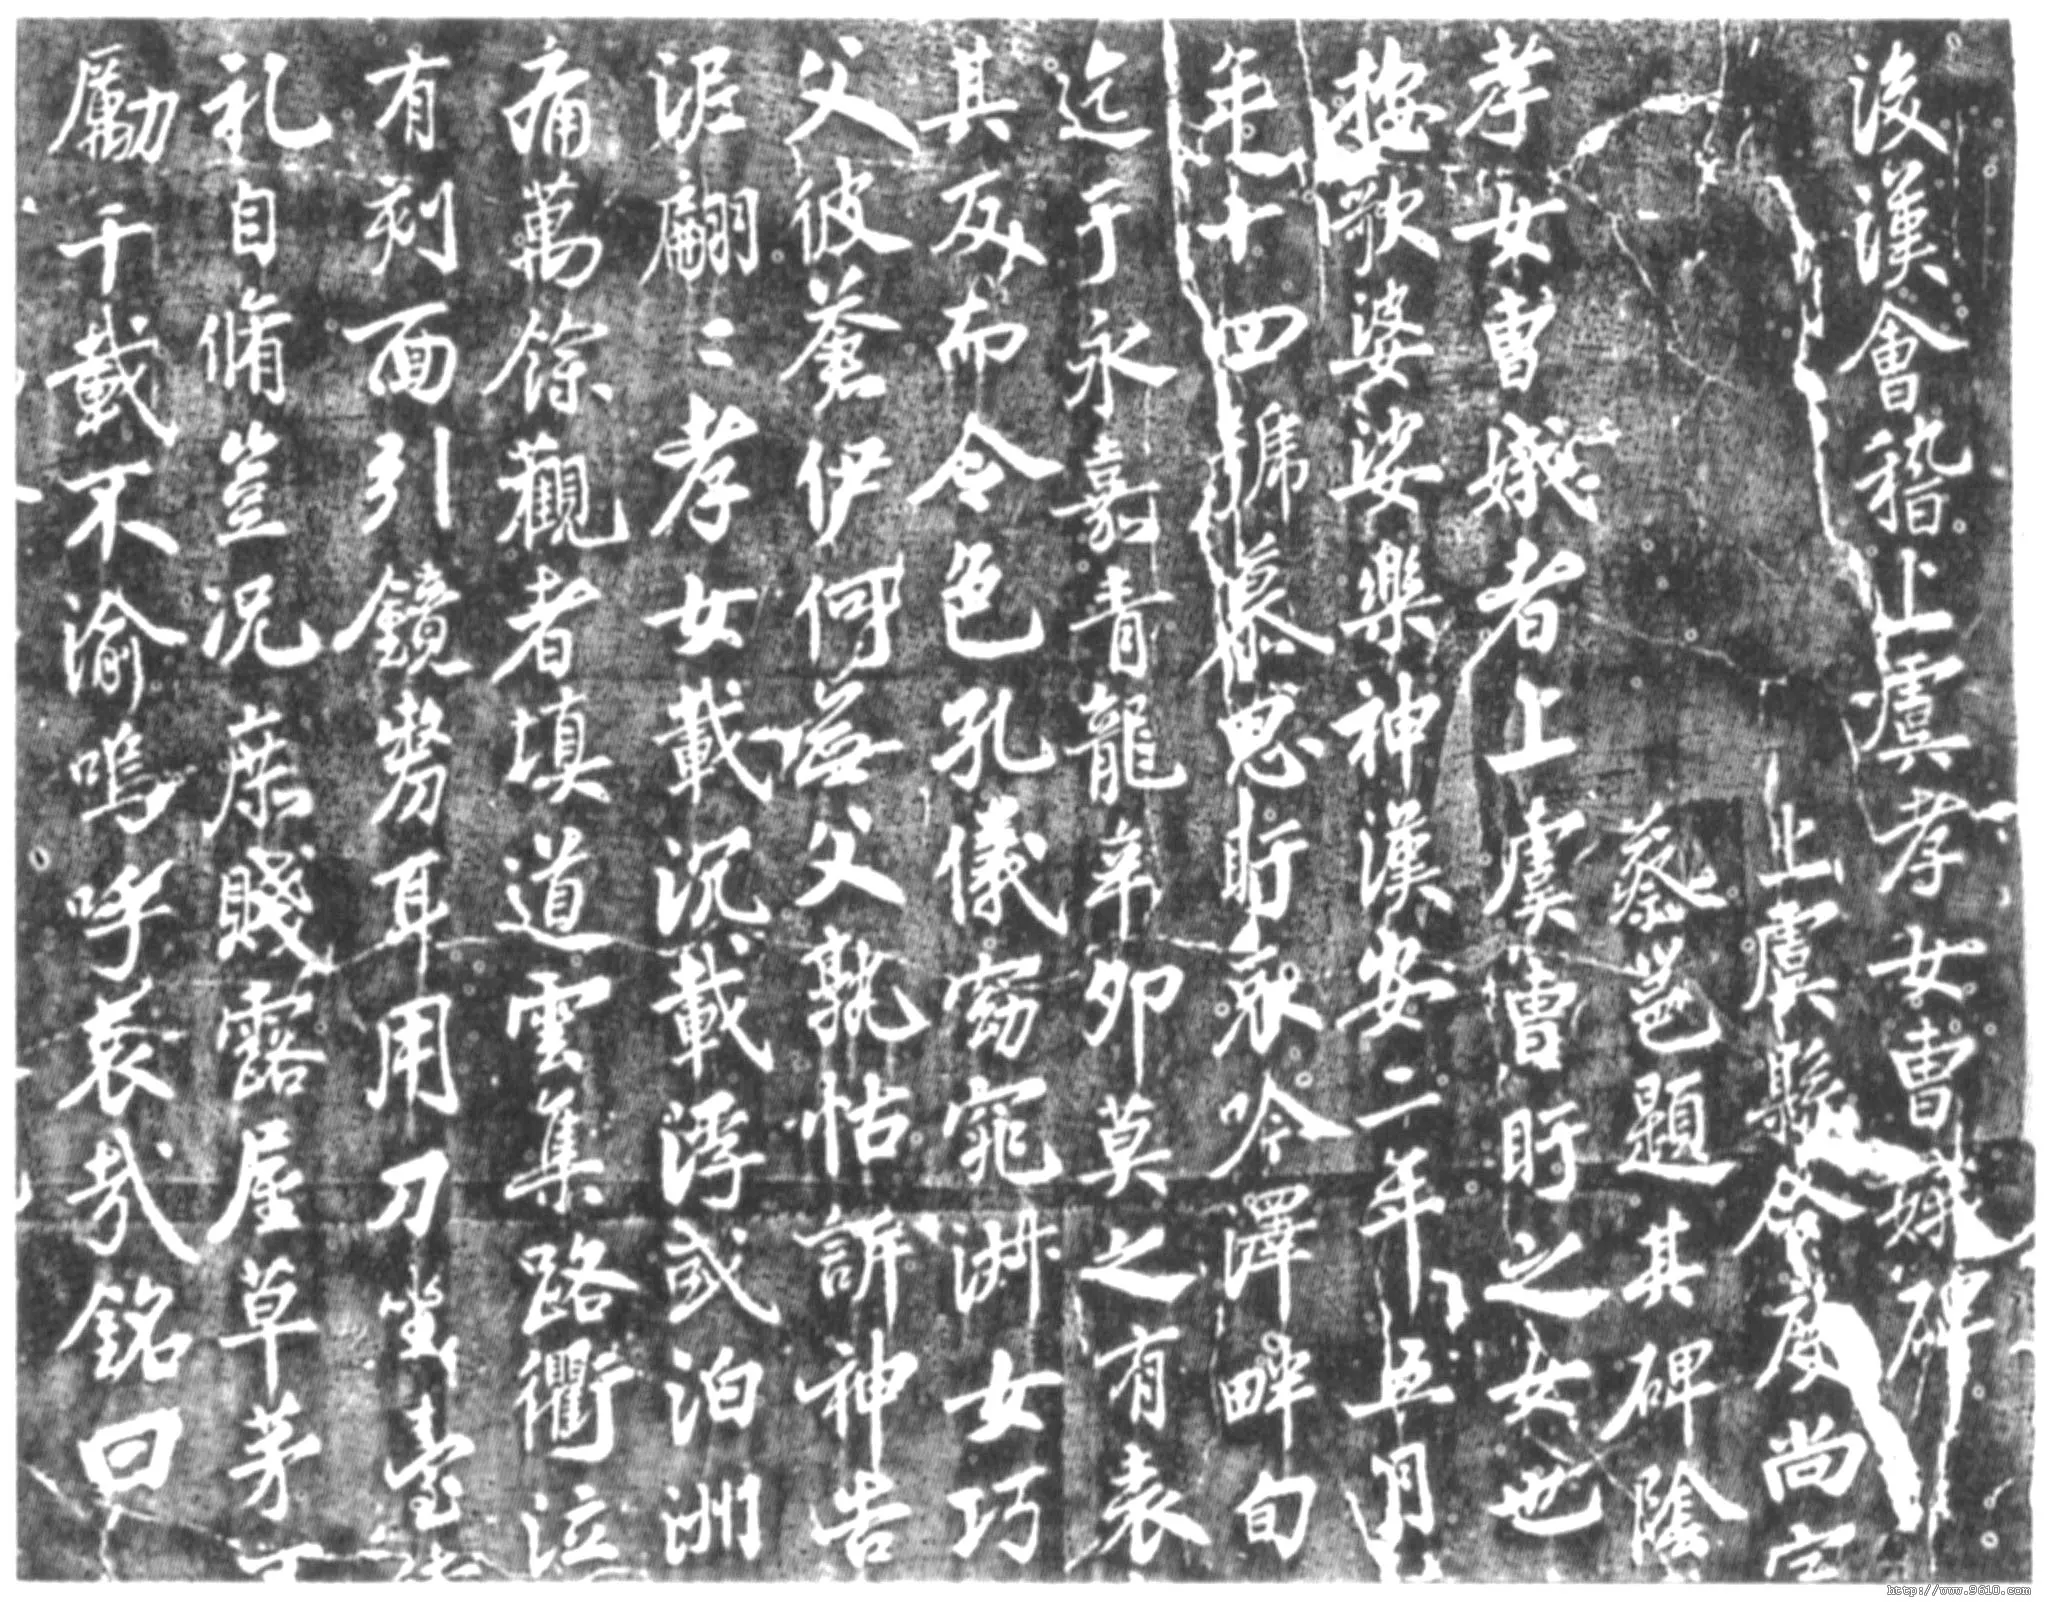 後漢會稽上虞孝女曹娥碑
上虞縣令度尚字
蔡邕題其碑陰
孝女曹娥者上虞曹盱之女也
按歌婆娑樂神漢安二年五月
年十四號慕思盱哀吟澤畔旬
迄于永嘉青龍辛卯莫之有表
其反而令色孔儀窈窕淑女巧
父彼蒼伊何無父孰怙訴神告
泥翩二孝女載沉載浮或泊洲
痛萬餘觀者填道雲集路衢泣
有剋面引鏡剺耳用刀坐臺
礼自脩豈況庶賤露屋草茅
勵千載不渝嗚呼哀哉銘曰
http://www.9610.com